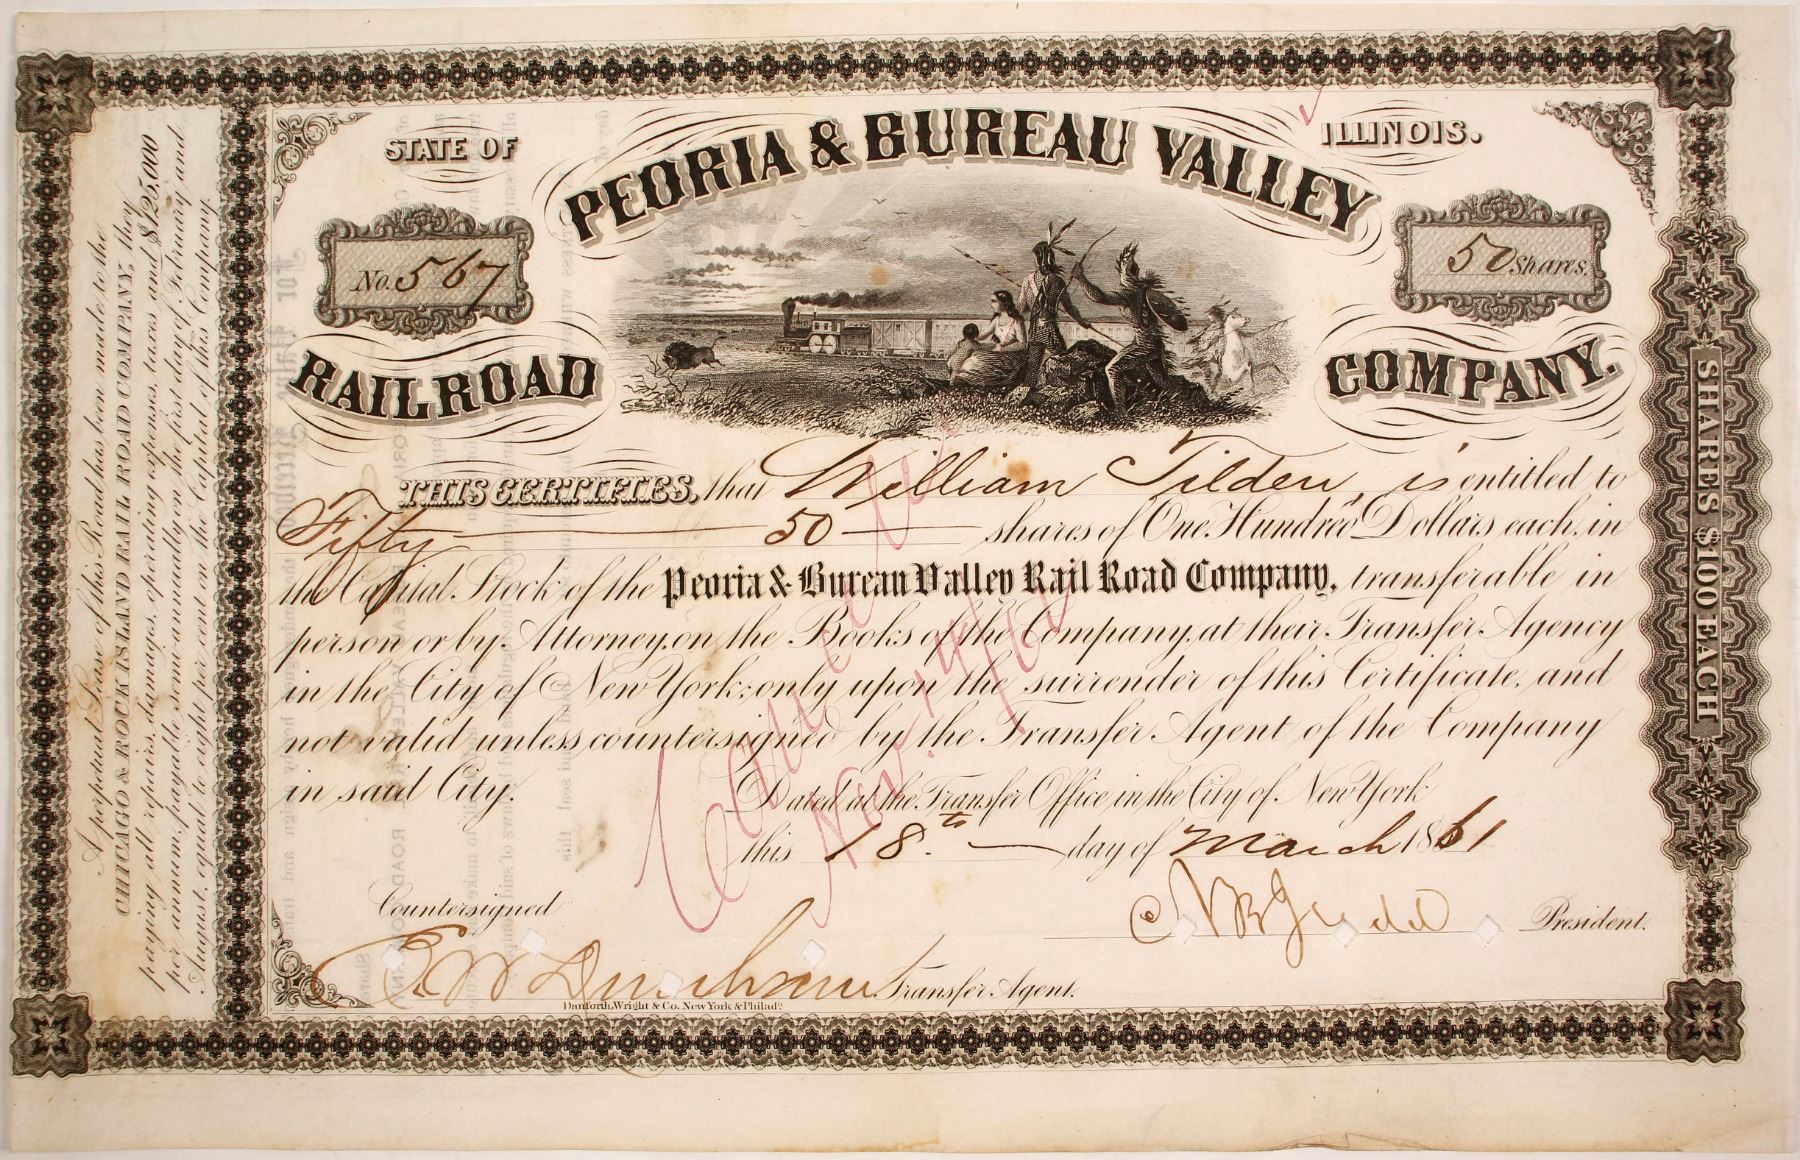 STATE OF
ILLINOIS.
PEORIA & BUREAU VALLEY
No. 567
50 Shares.
RAILROAD
COMPANY.
THIS CERTIFIES, that William Tilden is entitled to
Fifty 50 shares of One Hundred Dollars each, in
the Capital Stock of the Peoria & Bureau Valley Rail Road Company, transferable in
person or by Attorney, on the Books of the Company, at their Transfer Agency
in the City of New York; only upon the surrender of this Certificate, and
not valid unless countersigned by the Transfer Agent of the Company
in said City.
Dated at the Transfer Office in the City of New York
this 18th day of March 1861
Countersigned
President.
Transfer Agent.
Danforth, Wright & Co. New York & Philada.
Cancelled
Nov. 19/62
A perpetual Lease of this Road has been made to the
CHICAGO & ROCK ISLAND RAIL ROAD COMPANY, they
paying all repairs, damages, operating expenses, taxes and $125,000
per annum, payable semi-annually on the first day of February and
August, equal to eight per cent on the Capital of this Company.
SHARES $100 EACH